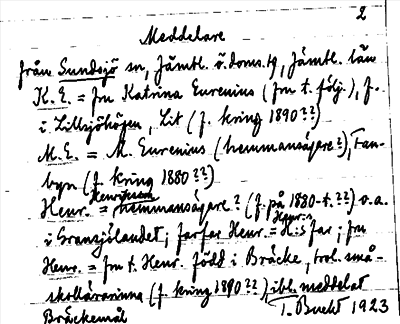 2
Meddelare
från Sundsjö sn, Jämtl. ö. doms., Jämtl. län
K. E. = fru Katrina Eurenius (fru t. följ.), f.
i Lillsjöhögen, Lit (f. kring 1890??)
M. E. = M. Eurenius (hemmansägare?), Fan-
byn (f. kring 1880??)
Henriksson
Henr. = hemmansägare? (f. på 1880-t.??) o.a.
i Gransjölandet; farfar Henr. = H:s far; fru
Henr. = fru t. Henr. född i Bräcke, trol. små-
skollärarinna (f. kring 1890??), ibl. meddelat
Bräckemål
1923